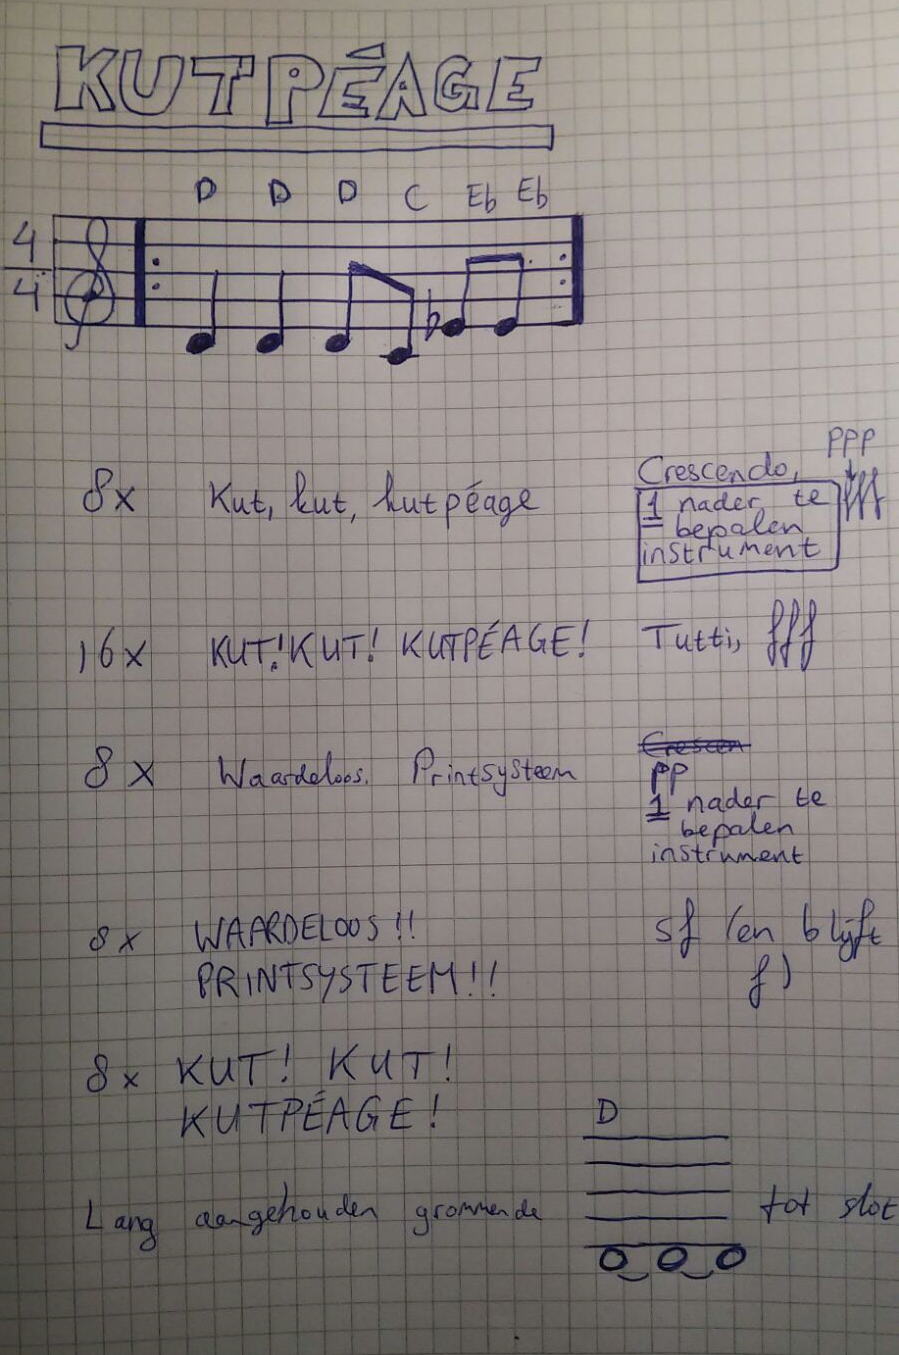 KUTPÉAGE
D D D C Eb Eb
4
4
ppp
8x Kut, kut, kutpéage Crescendo, fff
1 nader te
bepalen
instrument
16x KUT! KUT! KUTPÉAGE! Tutti, fff
Crescen
8x Waardeloos. Printsysteem pp
1 nader te
bepalen
instrument
8x WAARDELOOS!! sf (en blijft
PRINTSYSTEEM!! f)
8x KUT! KUT!
KUTPÉAGE!
D
Lang aangehouden grommende tot slot